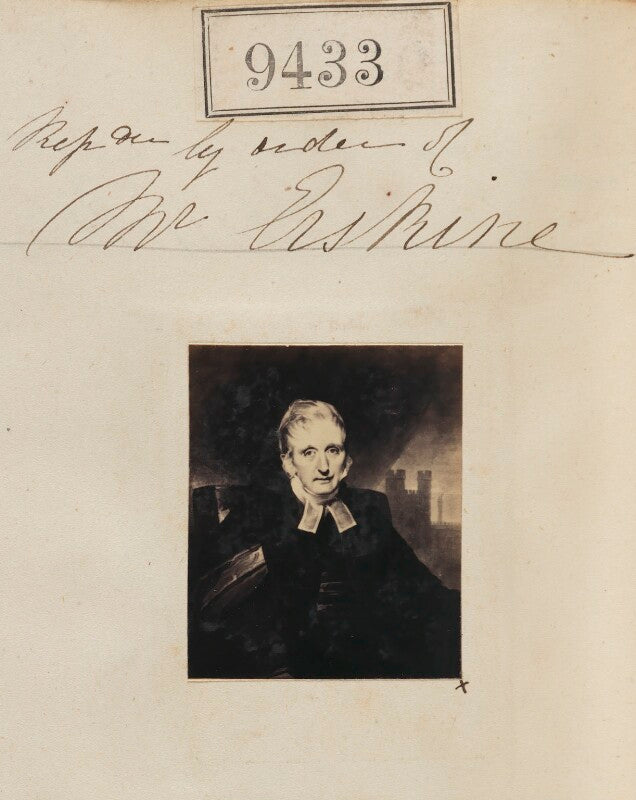 9433
by order of
Mr Erskine
x